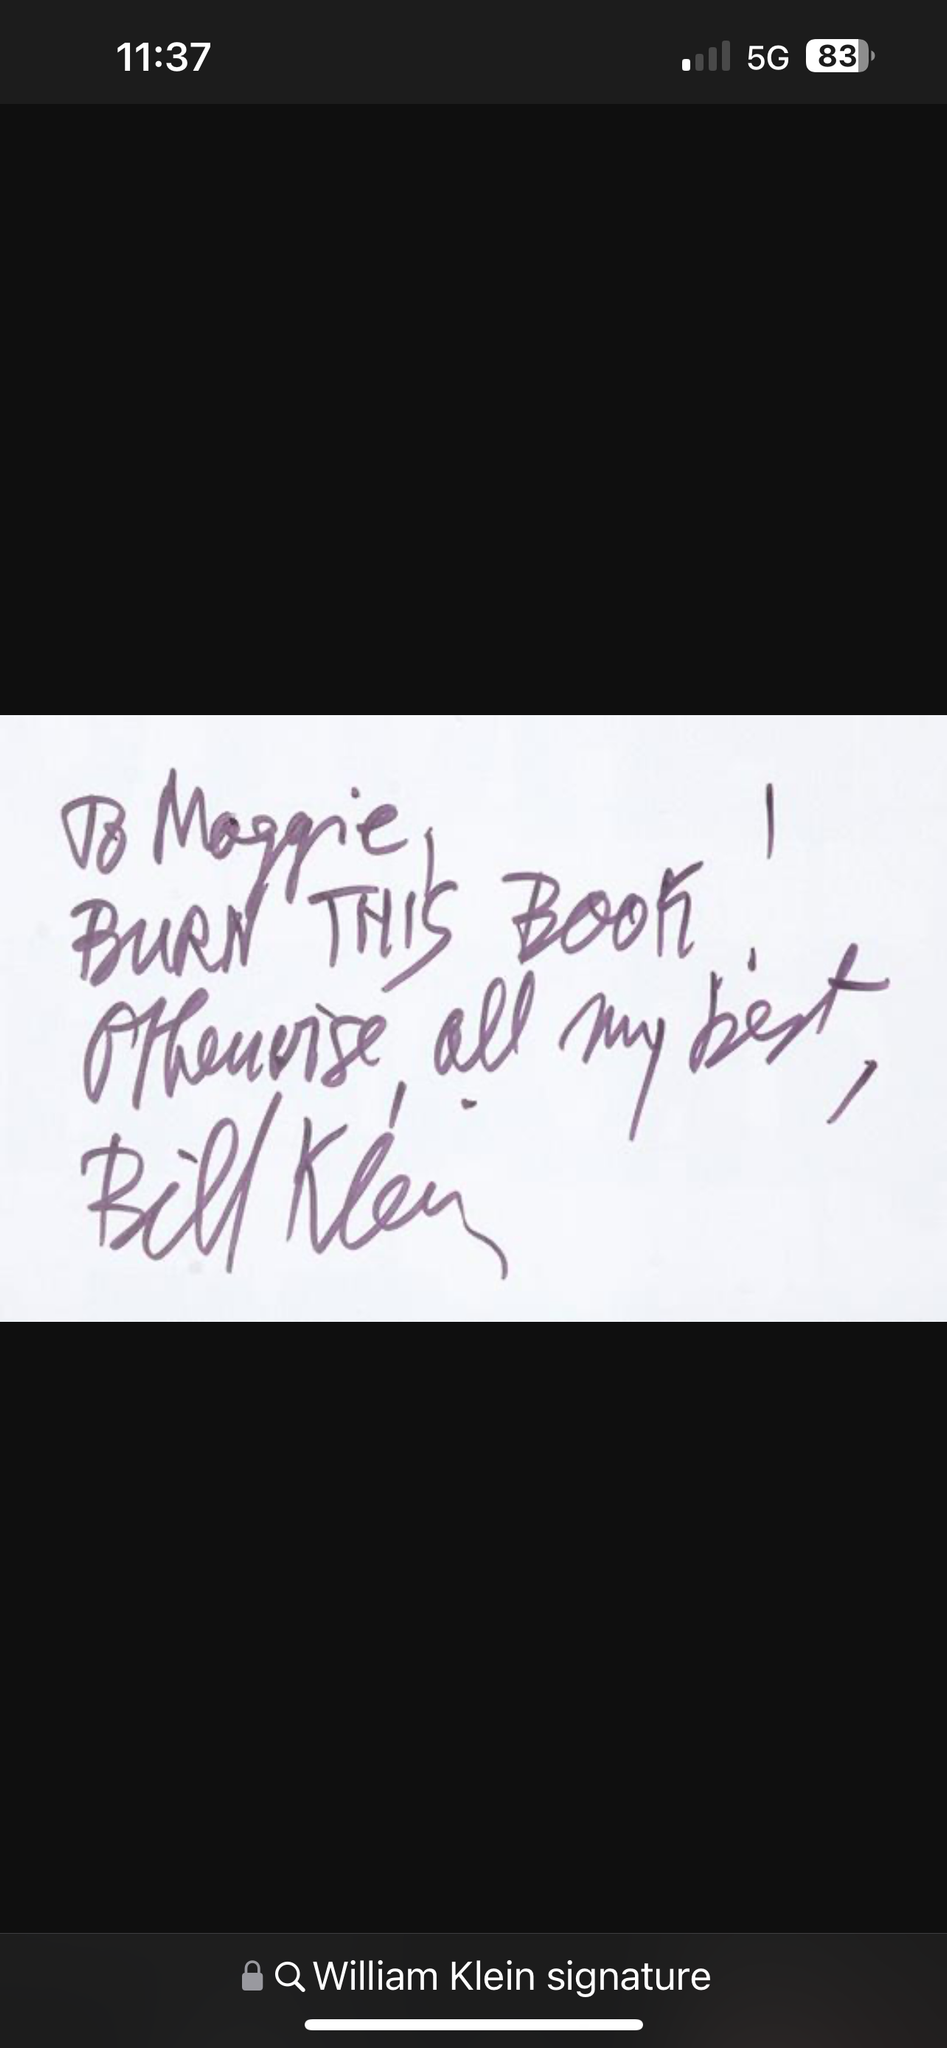 11:37 5G 83
To Maggie,
BURN THIS BOOK !
Otherwise, all my best,
Bill Klein
William Klein signature